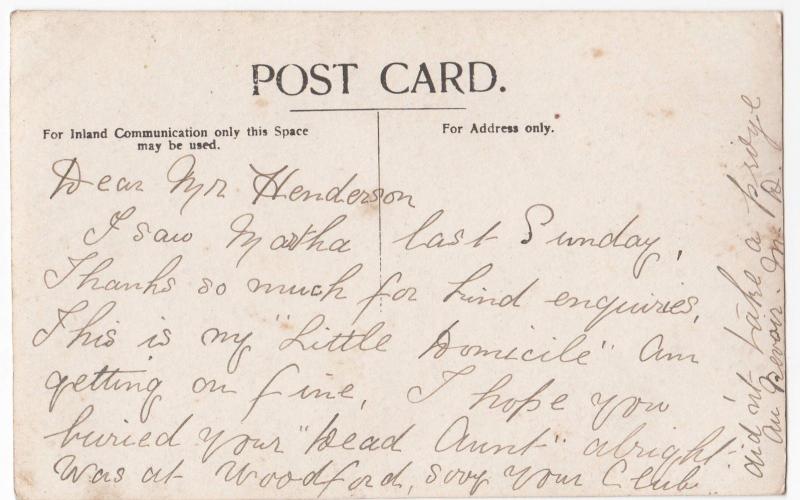 POST CARD.
For Inland Communication only this Space
may be used.
For Address only.
Dear Mr Henderson
I saw Martha last Sunday,
Thanks so much for kind enquiries,
This is my "Little Domicile" am
getting on fine, I hope you
buried your "Dead Aunt" alright
Was at Woodford, sorry your Club
did'nt take a prize
Au Revoir. M. D.